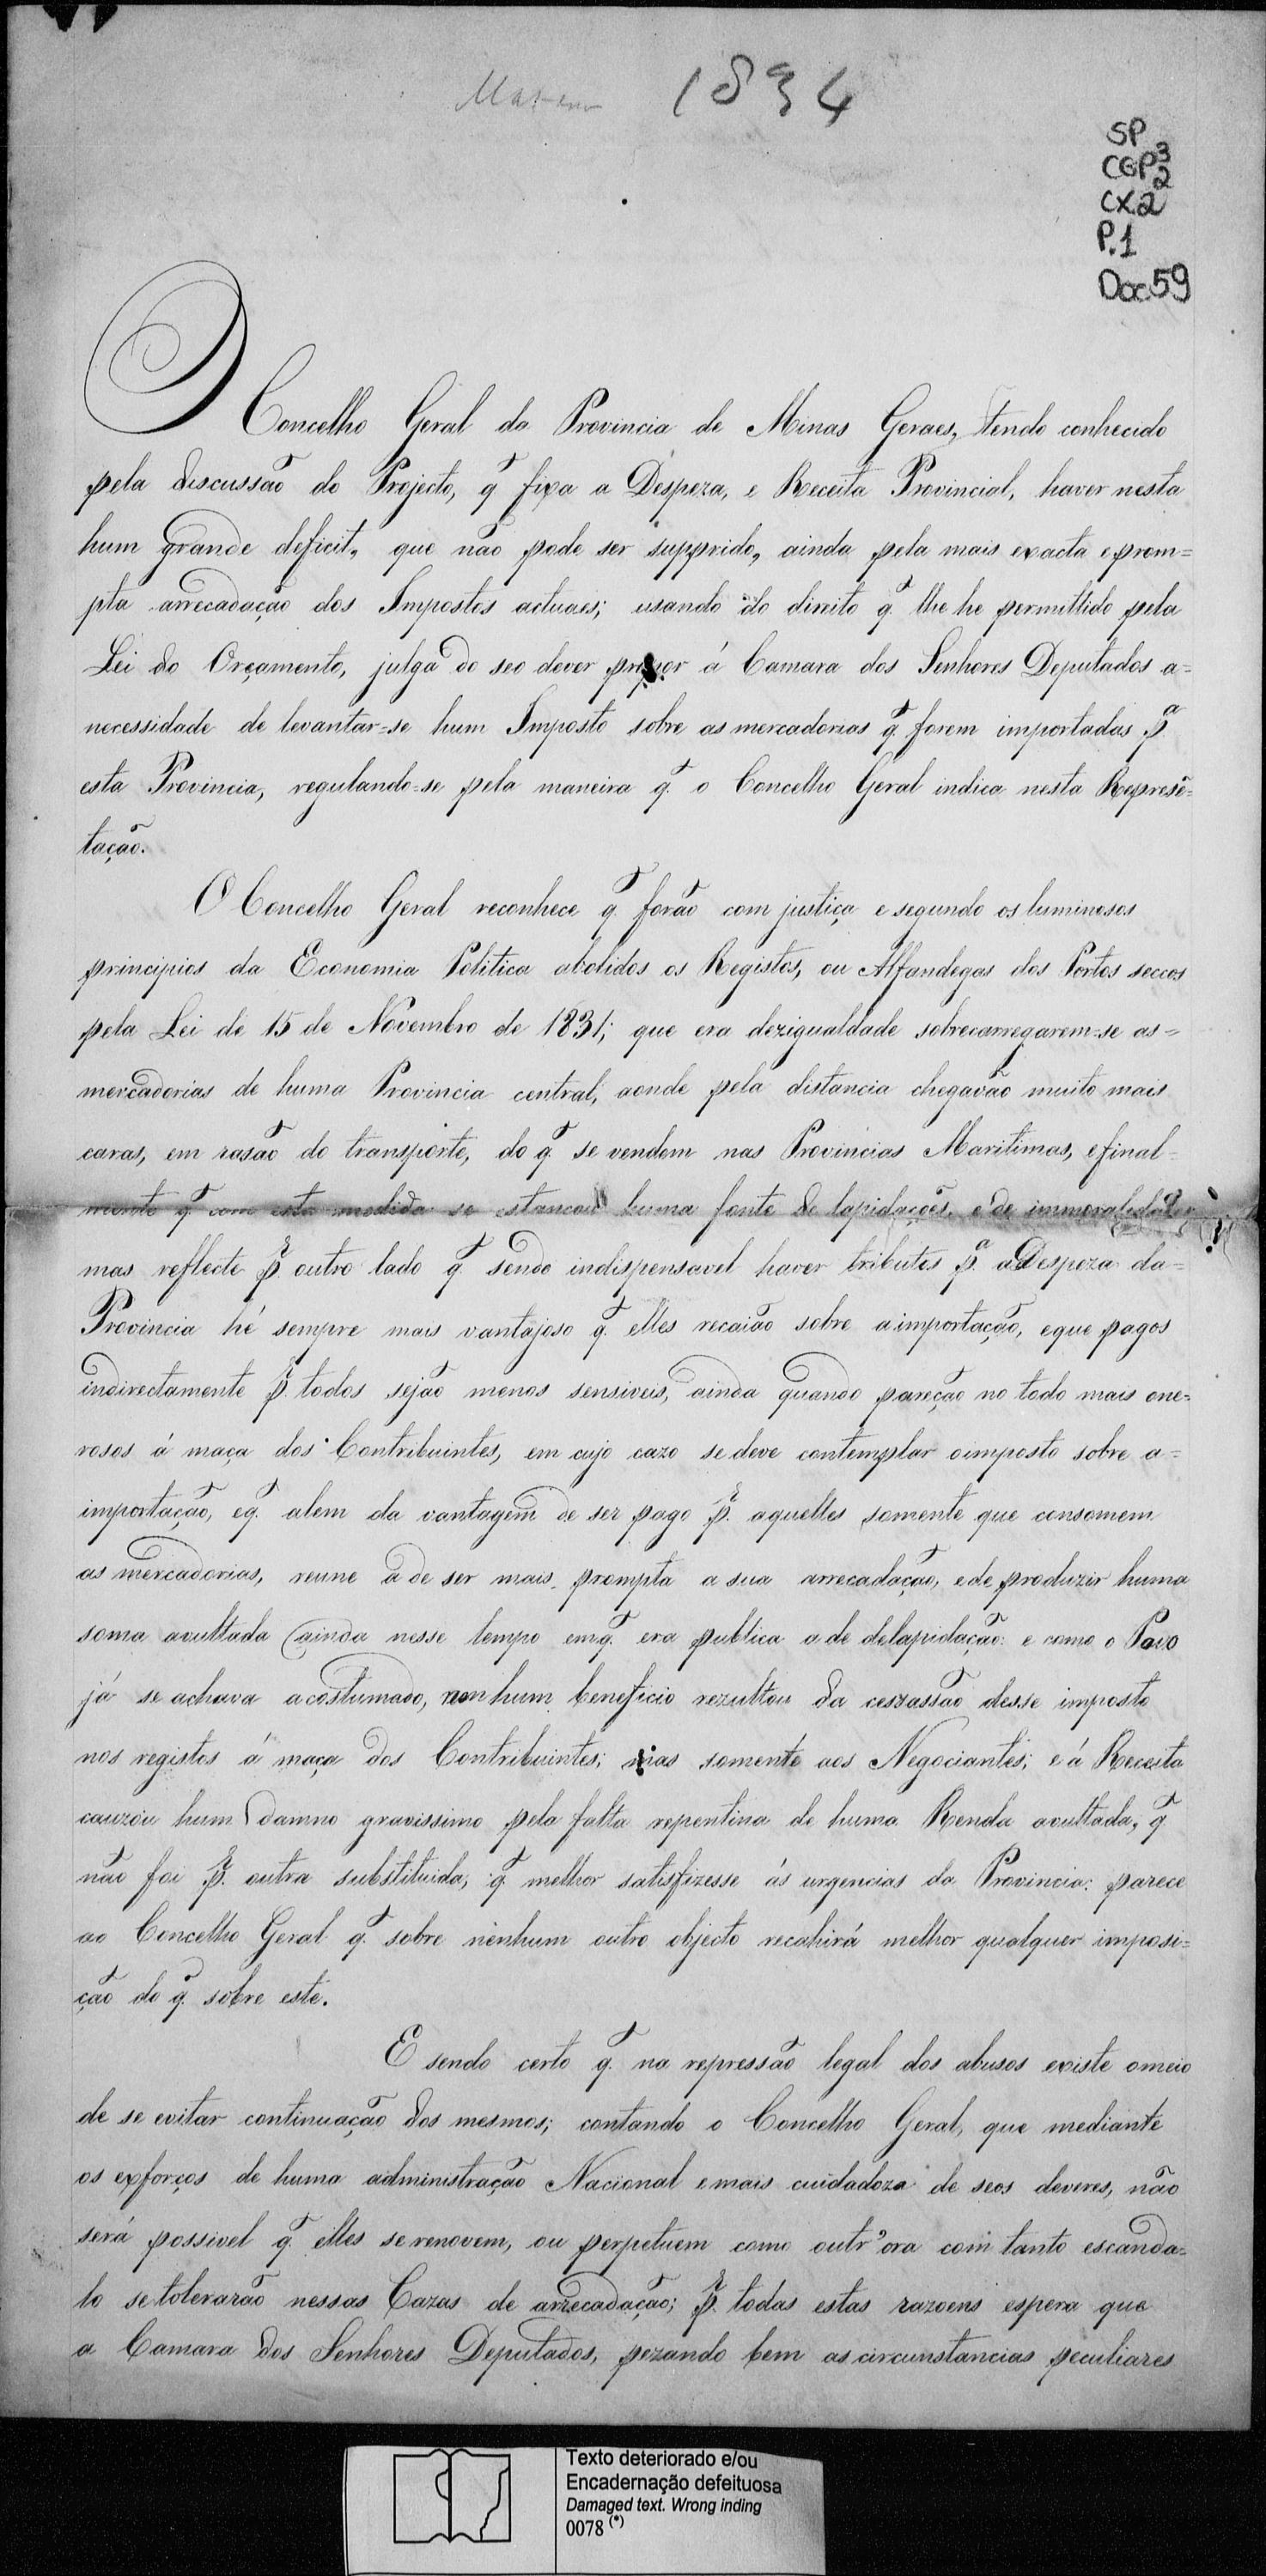 1834
SP
CGP3
2
CX2
P.1
Doc.59
O Concelho Geral da Provincia de Minas Geraes, tendo conhecido
pela discussão do Projecto, q̃ fixa a Despeza, e Receita Provincial, haver nesta
hum grande deficit, que não pode ser supprido, ainda pela mais exacta e prom=
pta arrecadação dos Impostos actuaes; usando do direito q̃ lhe he permittido pela
Lei do Orçamento, julga do seo dever propor á Camara dos Senhores Deputados a=
necessidade de levantar=se hum Imposto sobre as mercadorias q̃ forem importadas p.ª
esta Provincia, regulando=se pela maneira q̃ o Concelho Geral indica nesta Represẽ=
tação.
O Concelho Geral reconhece q̃ forão com justiça e segundo os luminosos
principios da Economia Politica abolidos os Registos, ou Alfandegas dos Portos seccos
pela Lei de 15 de Novembro de 1831; que era dezigualdade sobrecarregarem=se as=
mercadorias de huma Provincia central, aonde pela distancia chegavão muito mais
caras, em rasão do transporte, do q̃ se vendem nas Provincias Maritimas, e final=
mente q̃ com esta medida se estancou huma fonte de lapidações, e de immoralidades
mas reflecte p.r outro lado q̃ sendo indispensavel haver tributos p.ª a Despeza da=
Provincia hé sempre mais vantajoso q̃ elles recaião sobre a importação, e que pagos
indirectamente p.r todos sejão menos sensiveis, ainda quando pareção no todo mais one=
rosos á maça dos Contribuintes, em cujo cazo se deve contemplar o imposto sobre a=
importação, e q̃ alem da vantagem de ser pago p.r aquelles somente que consomem
as mercadorias, reune a de ser mais prompta a sua arrecadação, e de produzir huma
soma avultada (ainda nesse tempo em q̃ era publica a de delapidação: e como o Povo
já se achava acostumado, nenhum beneficio rezultou da cessassão desse imposto
nos registos á maça dos Contribuintes; mas somente aos Negociantes; e á Receita
cauzou hum damno gravissimo pela falta repentina de huma Renda avultada, q̃
não foi p.r outra substituida, q̃ melhor satisfizesse ás urgencias da Provincia: parece
ao Concelho Geral q̃ sobre nenhum outro objecto recahirá melhor qualquer imposi=
ção do q̃ sobre este.
E sendo certo q̃ na repressão legal dos abusos existe o meio
de se evitar continuação dos mesmos; contando o Concelho Geral, que mediante
os exforços de huma administração Nacional e mais cuidadoza de seos deveres, não
será possivel q̃ elles se renovem, ou perpetuem como outr'ora com tanto escanda=
lo se tolerarão nessas Cazas de arrecadação; p.r todas estas razoens espera que
a Camara dos Senhores Deputados, pezando bem as circunstancias peculiares
Texto deteriorado e/ou
Encadernação defeituosa
Damaged text. Wrong inding
0078 (*)